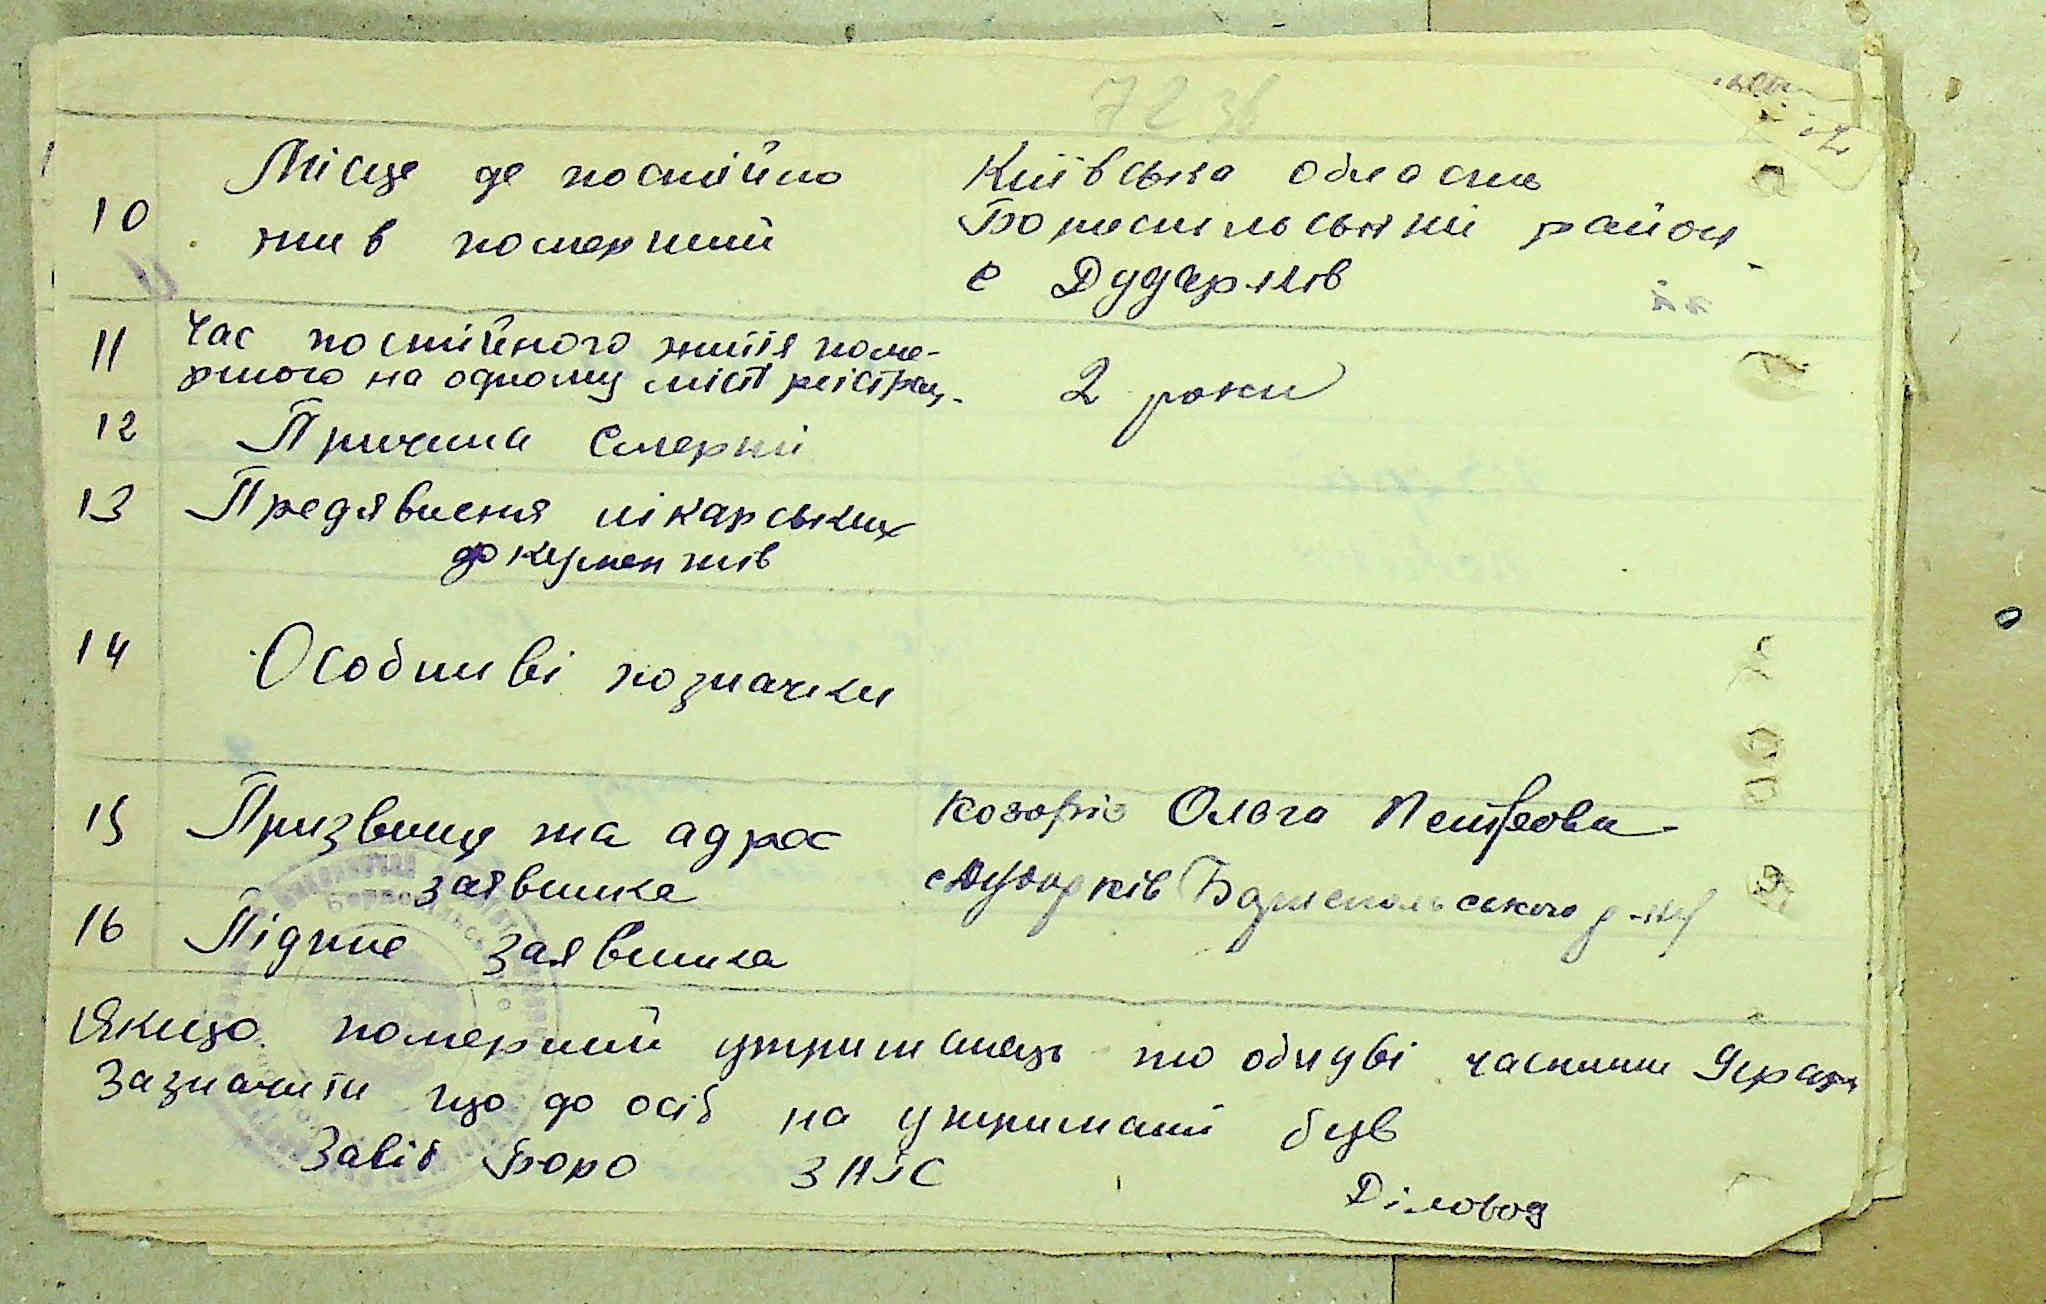 72 зв
10 Місце де постійно
жив померший
Київська область
Бориспільський район
с Дударків
11 Час постійного життя поме-
ршого на одному місті реістрац.
2 роки
12 Причина смерті
13 Предявленя лікарських
документів
14 Особливі позначки
15 Призвище та адрос
заявника
Козоріз Ольга Петровна
с Дударків Бориспольського р-ну
16 Підпис заявника
Якщо померший утриманець то обидві частини
Зазначити що до осіб на утримані був
Завід Бюро ЗАГС
Діловод